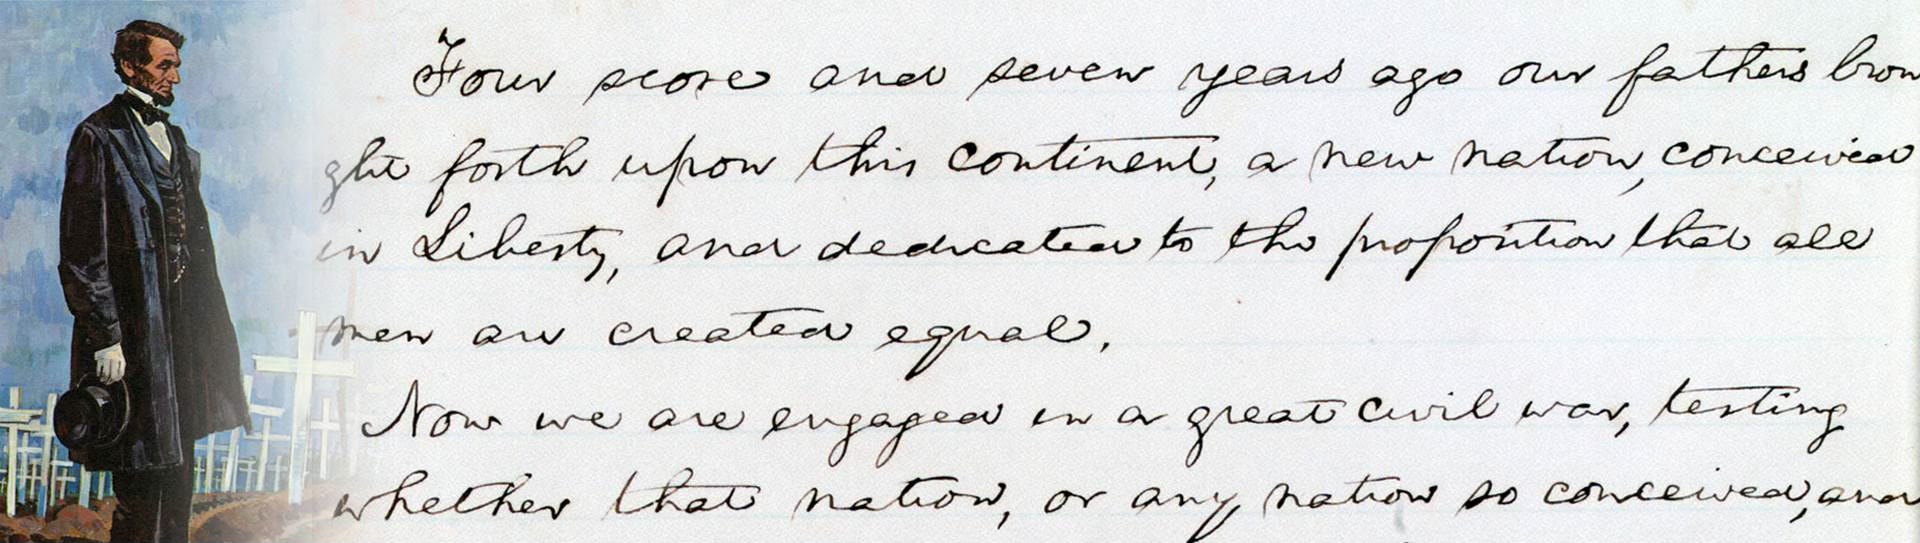 Four score and seven years ago our fathers brou
ght forth upon this continent, a new nation, conceived
in Liberty, and dedicated to the proposition that all
men are created equal.
Now we are engaged in a great civil war, testing
whether that nation, or any nation so conceived, and